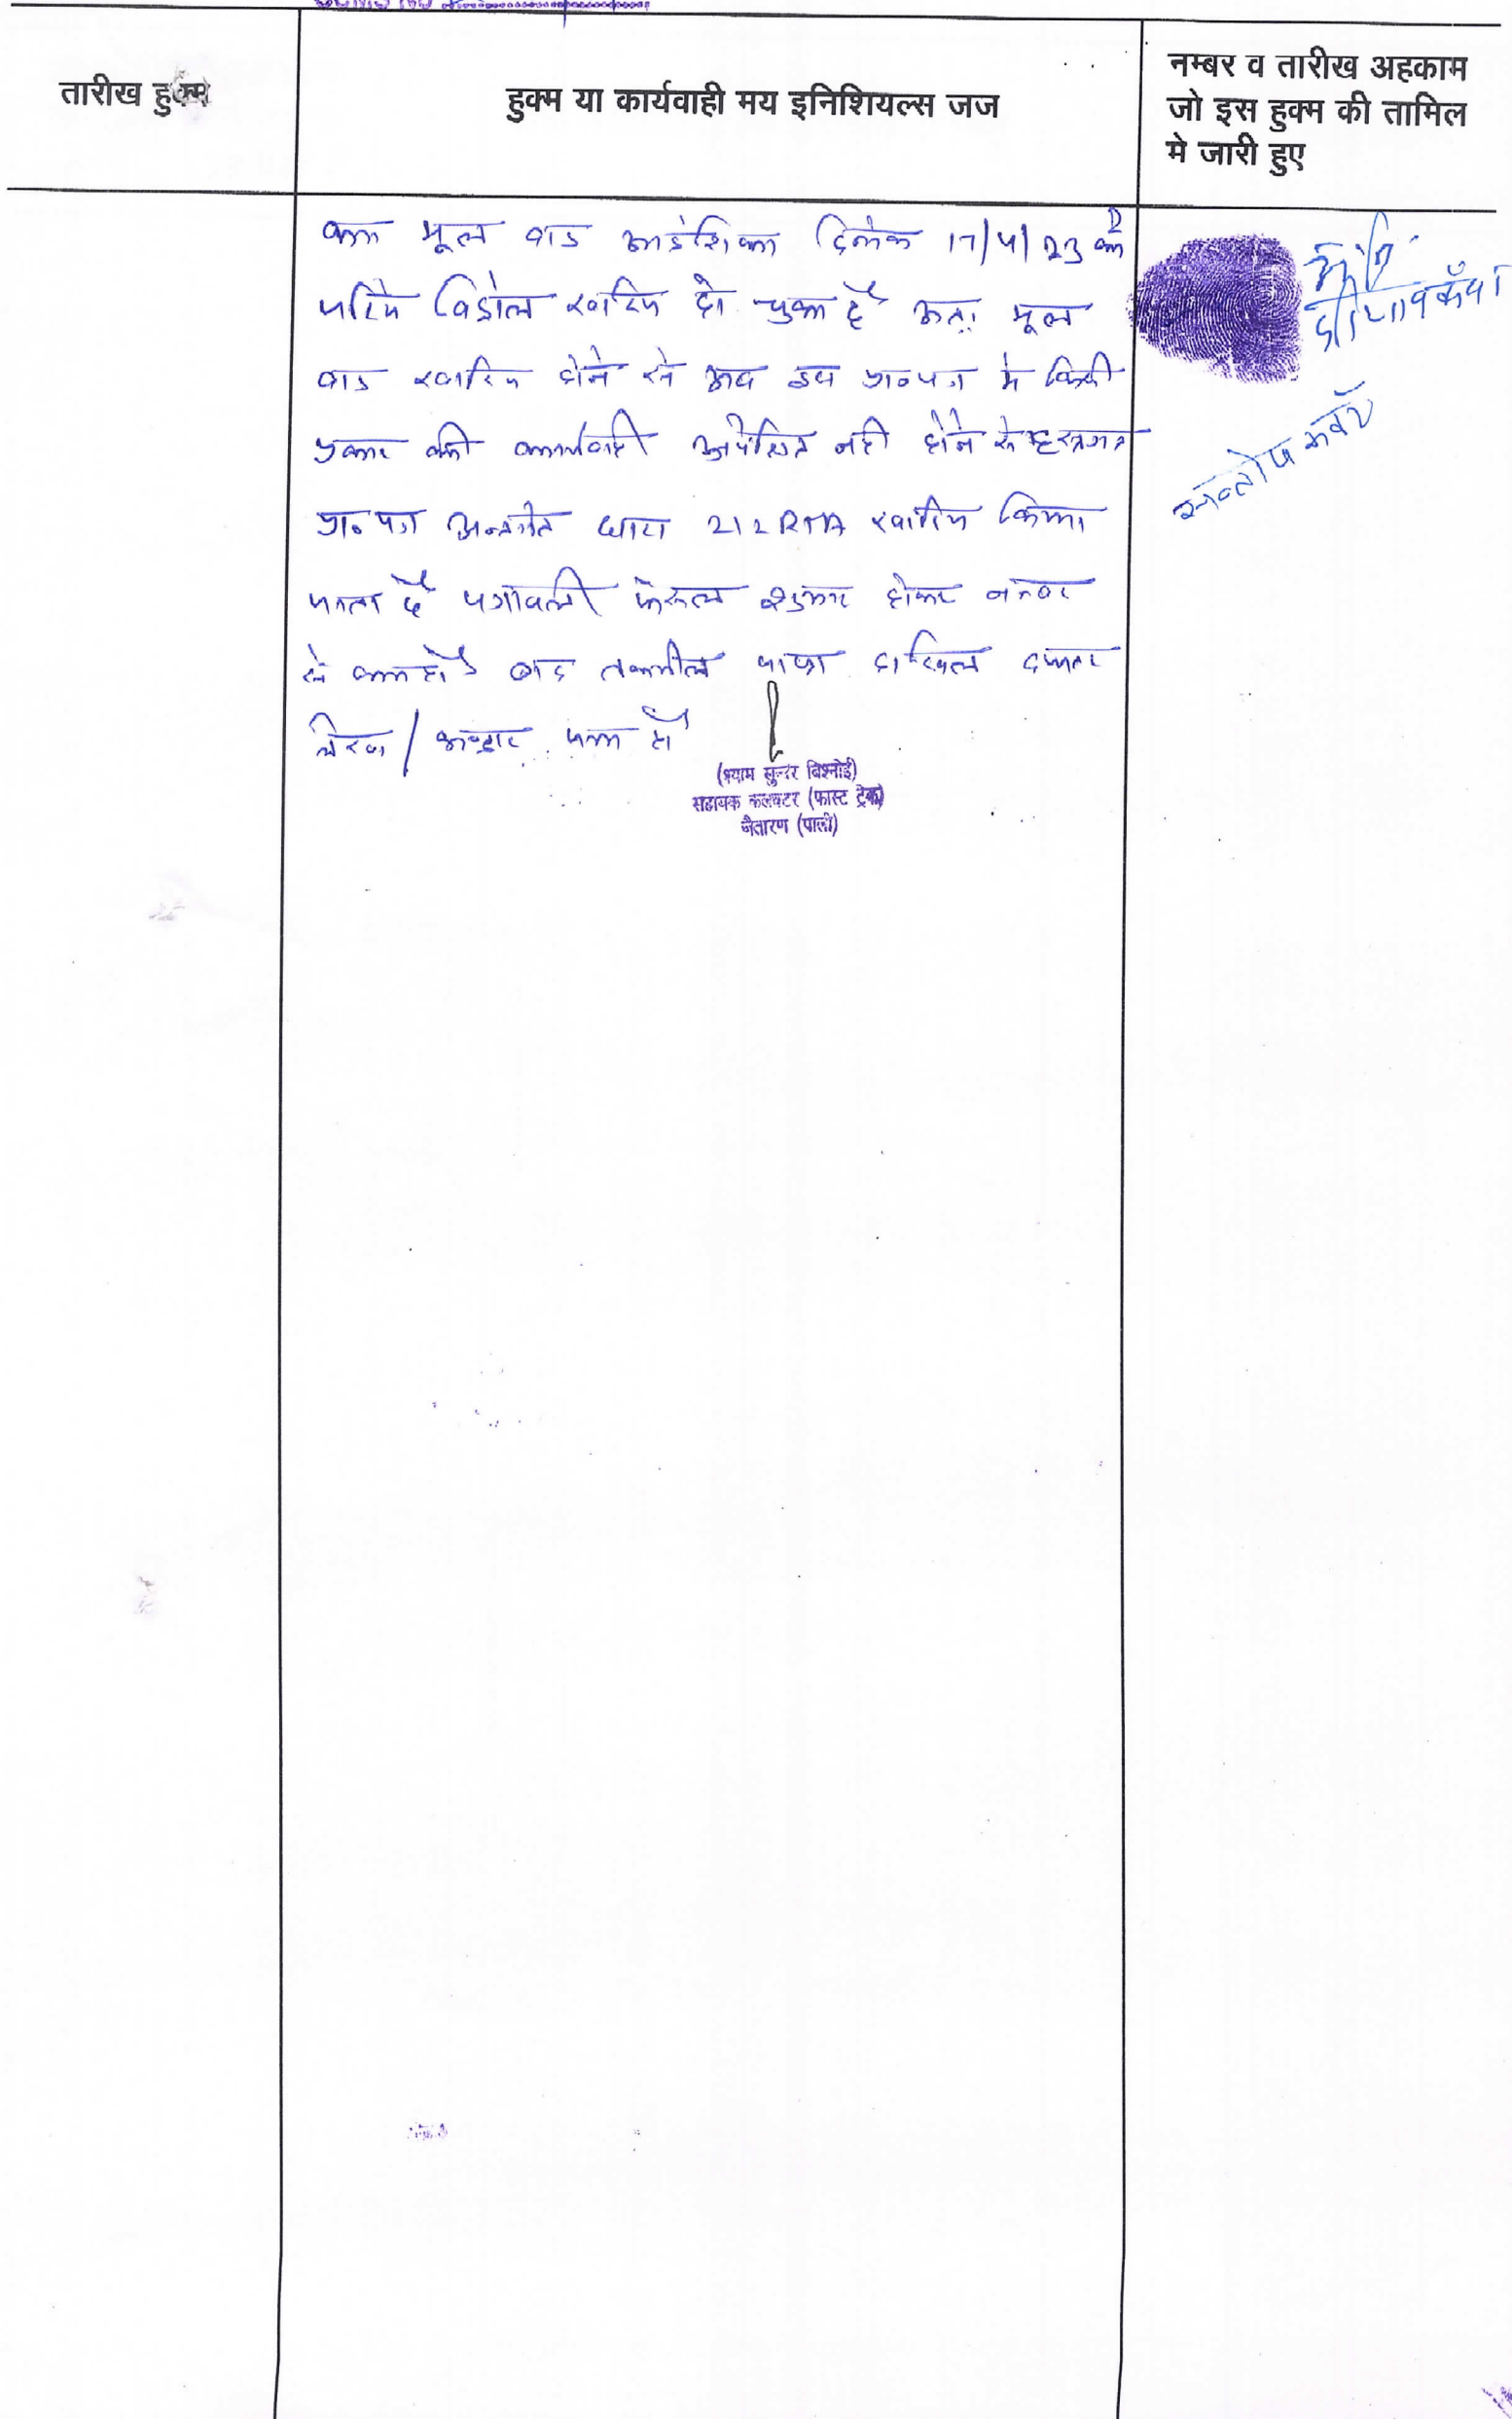 तारीख हुक्म
हुक्म या कार्यवाही मय इनिशियल्स जज
नम्बर व तारीख अहकाम
जो इस हुक्म की तामिल
मे जारी हुए
का मूल वाद आदेशिका दिनांक 17/4/23 के
जरिये विड्रोल खारिज हो चुका है अतः मूल
वाद खारिज होने से अब इस प्रा०पत्र मे किसी
प्रकार की कार्यवाही अपेक्षित नही होने से हस्तगत
प्रा०पत्र अन्तर्गत धारा 212 RTA खारिज किया
जाता है पत्रावली फैसल शुमार होकर नम्बर
से कम हो बाद तकमील पत्रा दाखिल दफ्तर
लेख / भण्डार जमा हो
(श्याम सुन्दर बिश्नोई)
सहायक कलक्टर (फास्ट ट्रेक)
जैतारण (पाली)
सन्तोष कवँर